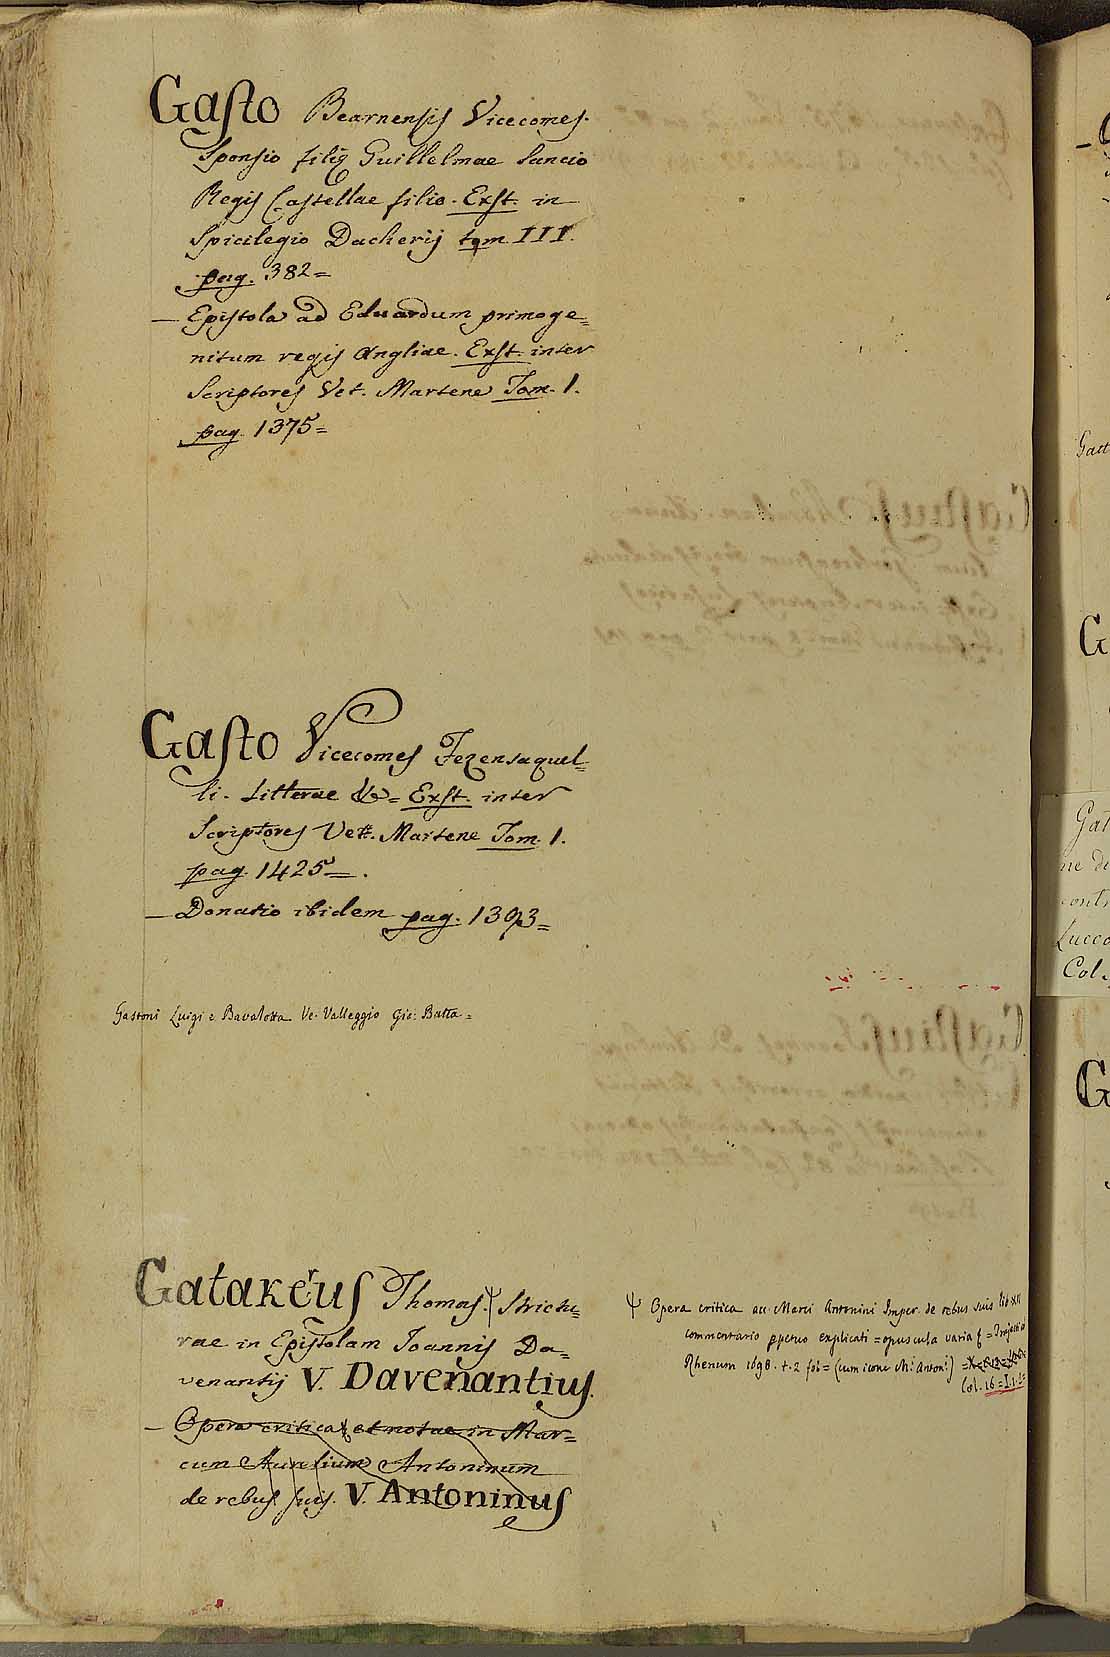 Gasto Bearnensis Vicecomes.
Sponsio filię Guillelmae Sancio
Regis Castellae filio. Exst. in
Spicilegio Dacherij tom. III.
pag. 382=
— Epistola ad Eduardum primoge=
nitum regis Angliae. Exst. inter
Scriptores Vet. Martene Tom. 1.
pag. 1375=
Gasto Vicecomes Fezensaquel=
li. Litterae &c= Exst. inter
Scriptores Vett. Martene Tom. 1.
pag. 1425=.
— Donatio ibidem pag. 1393=
Gastoni Luigi e Bavalotta Ve. Valleggio Gio: Batta=
Gatakerus Thomas. Ψ Strictu=
rae in Epistolam Joannis Da=
venantij V. Davenantius.
— Opera critica et notae in Mar=
cum Aurelium Antoninum
de rebus suis. V. Antoninus
Ψ Opera critica au. Marci Antonini Imper. de rebus suis lib. XII
commentario ppetuo explicati = opuscula varia = Trajecti ad
Rhenum 1698. t. 2 fol = (cum icone M: Anton:)
Col. 16 = I. 1. 2=
Gatt
G
Gat
ne de
contr
Lucca
Col.
G